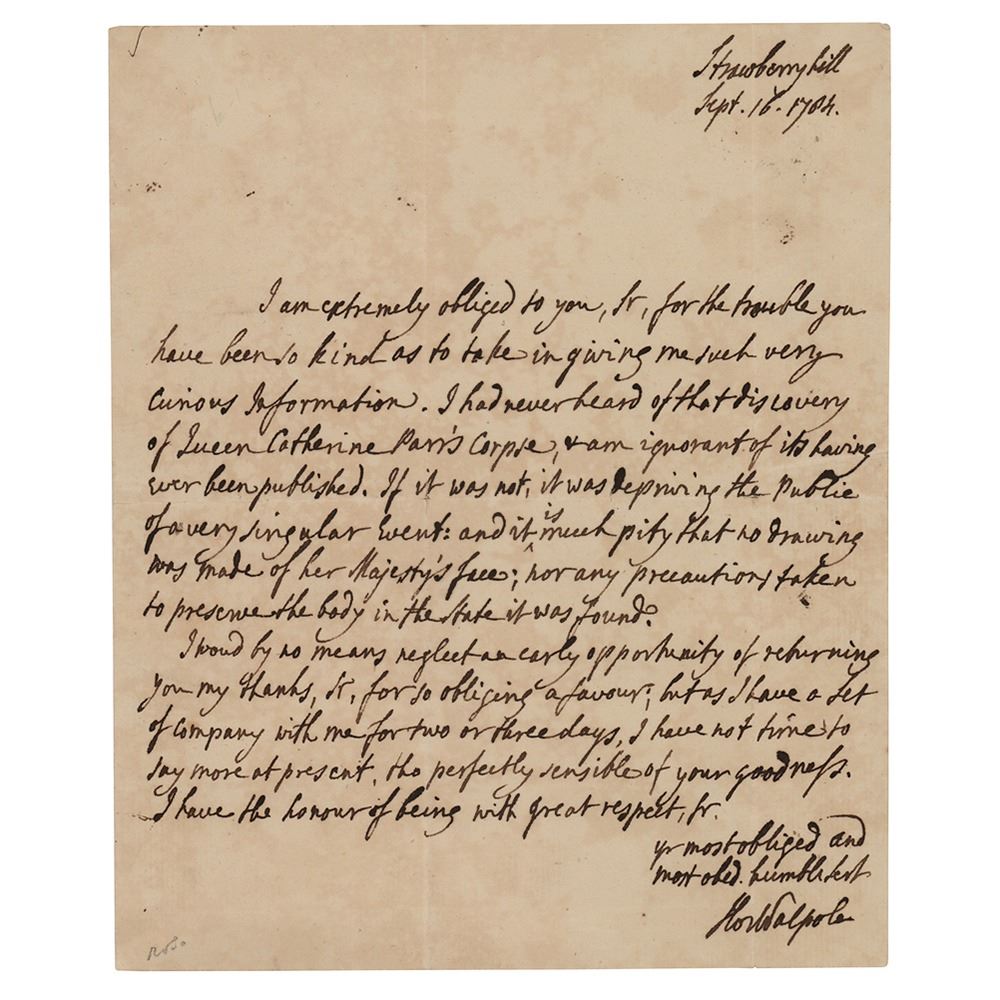 Strawberry hill
Sept. 16. 1784.
I am extremely obliged to you, Sr, for the trouble you
have been so kind as to take in giving me such very
curious Information. I had never heard of that discovery
of Queen Catherine Parr's Corpse, & am ignorant of its having
ever been published. If it was not, it was depriving the Public
of a very singular Event: and it is much pity that no drawing
was made of her Majesty's face; nor any precautions taken
to preserve the body in the state it was found.
I woud by no means neglect an early opportunity of returning
you my thanks, Sr, for so obliging a favour; but as I have a set
of company with me for two or three days, I have not time to
say more at present, tho perfectly sensible of your goodness.
I have the honour of being with great respect, Sr.
yr most obliged and
most obed. humble sert
Hor Walpole